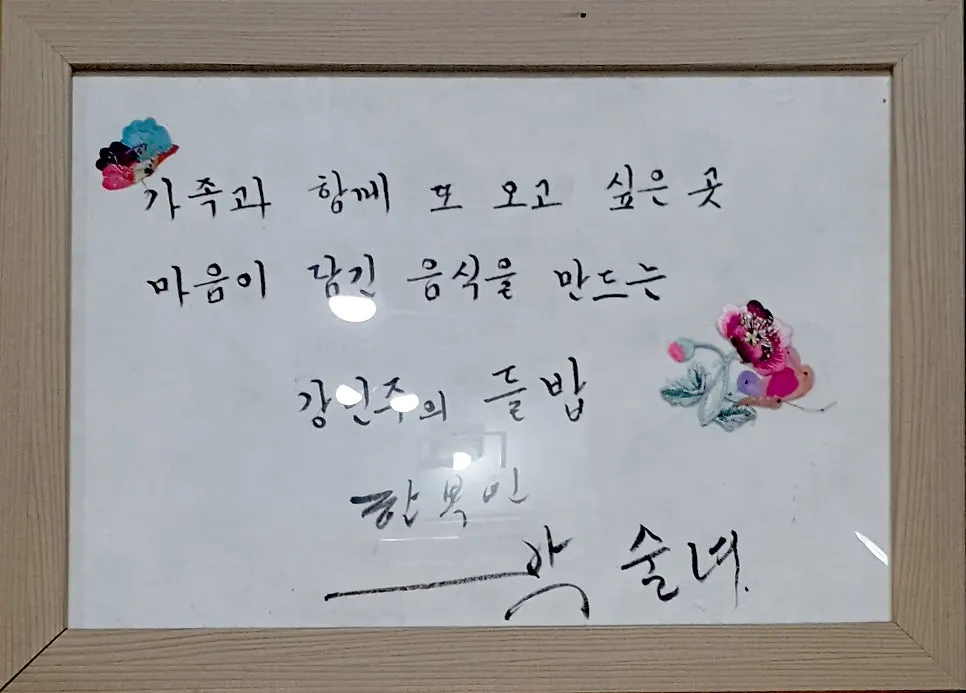 가족과 함께 또 오고 싶은 곳
마음이 담긴 음식을 만드는
강민주의 들밥
한복인
박 술녀.